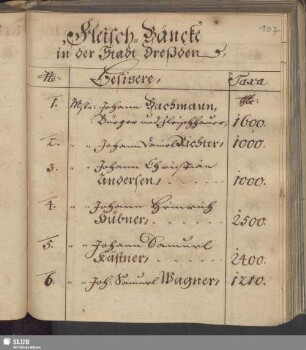 107
Fleisch Bäncke
in der Stadt Dreßden
No: Besizere, Taxa.
1. Mstr: Johann Bachmann,
Bürger und Fleischhauer, 1600.
2. " " Johann Daniel Richter, 1000.
3. " " Johann Christian
Andersen, 1000.
4. " " Johann Heinrich
Hübner, 2500.
5. " " Johann Samuel
Kästner, 2400.
6. " " Joh. Samuel Wagner, 1210.
SLUB
Wir führen Wissen.